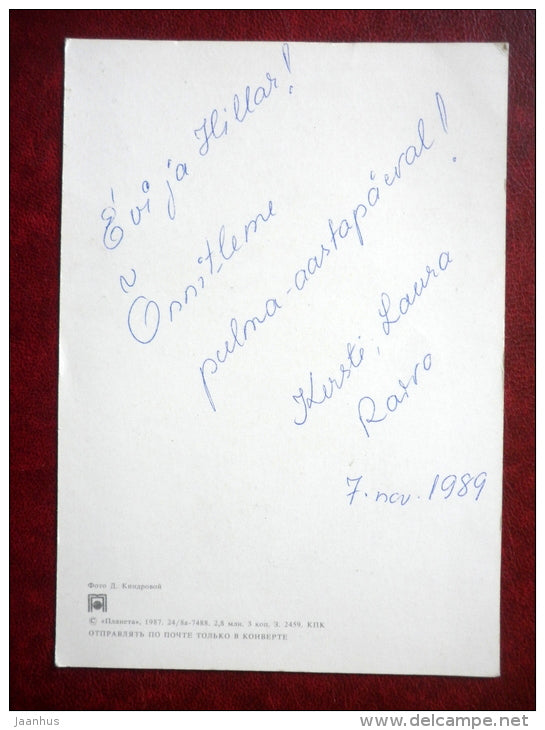 Evi ja Hillar!
Õnnitleme
pulma-aastapäeval!
Kersti, Laura
Raivo
7. nov. 1989
Фото Д. Киндровой
© «Планета», 1987. 24/8а-7488. 2,8 млн. 3 коп. З. 2459. КПК
ОТПРАВЛЯТЬ ПО ПОЧТЕ ТОЛЬКО В КОНВЕРТЕ
jaanhus
www.delcampe.net